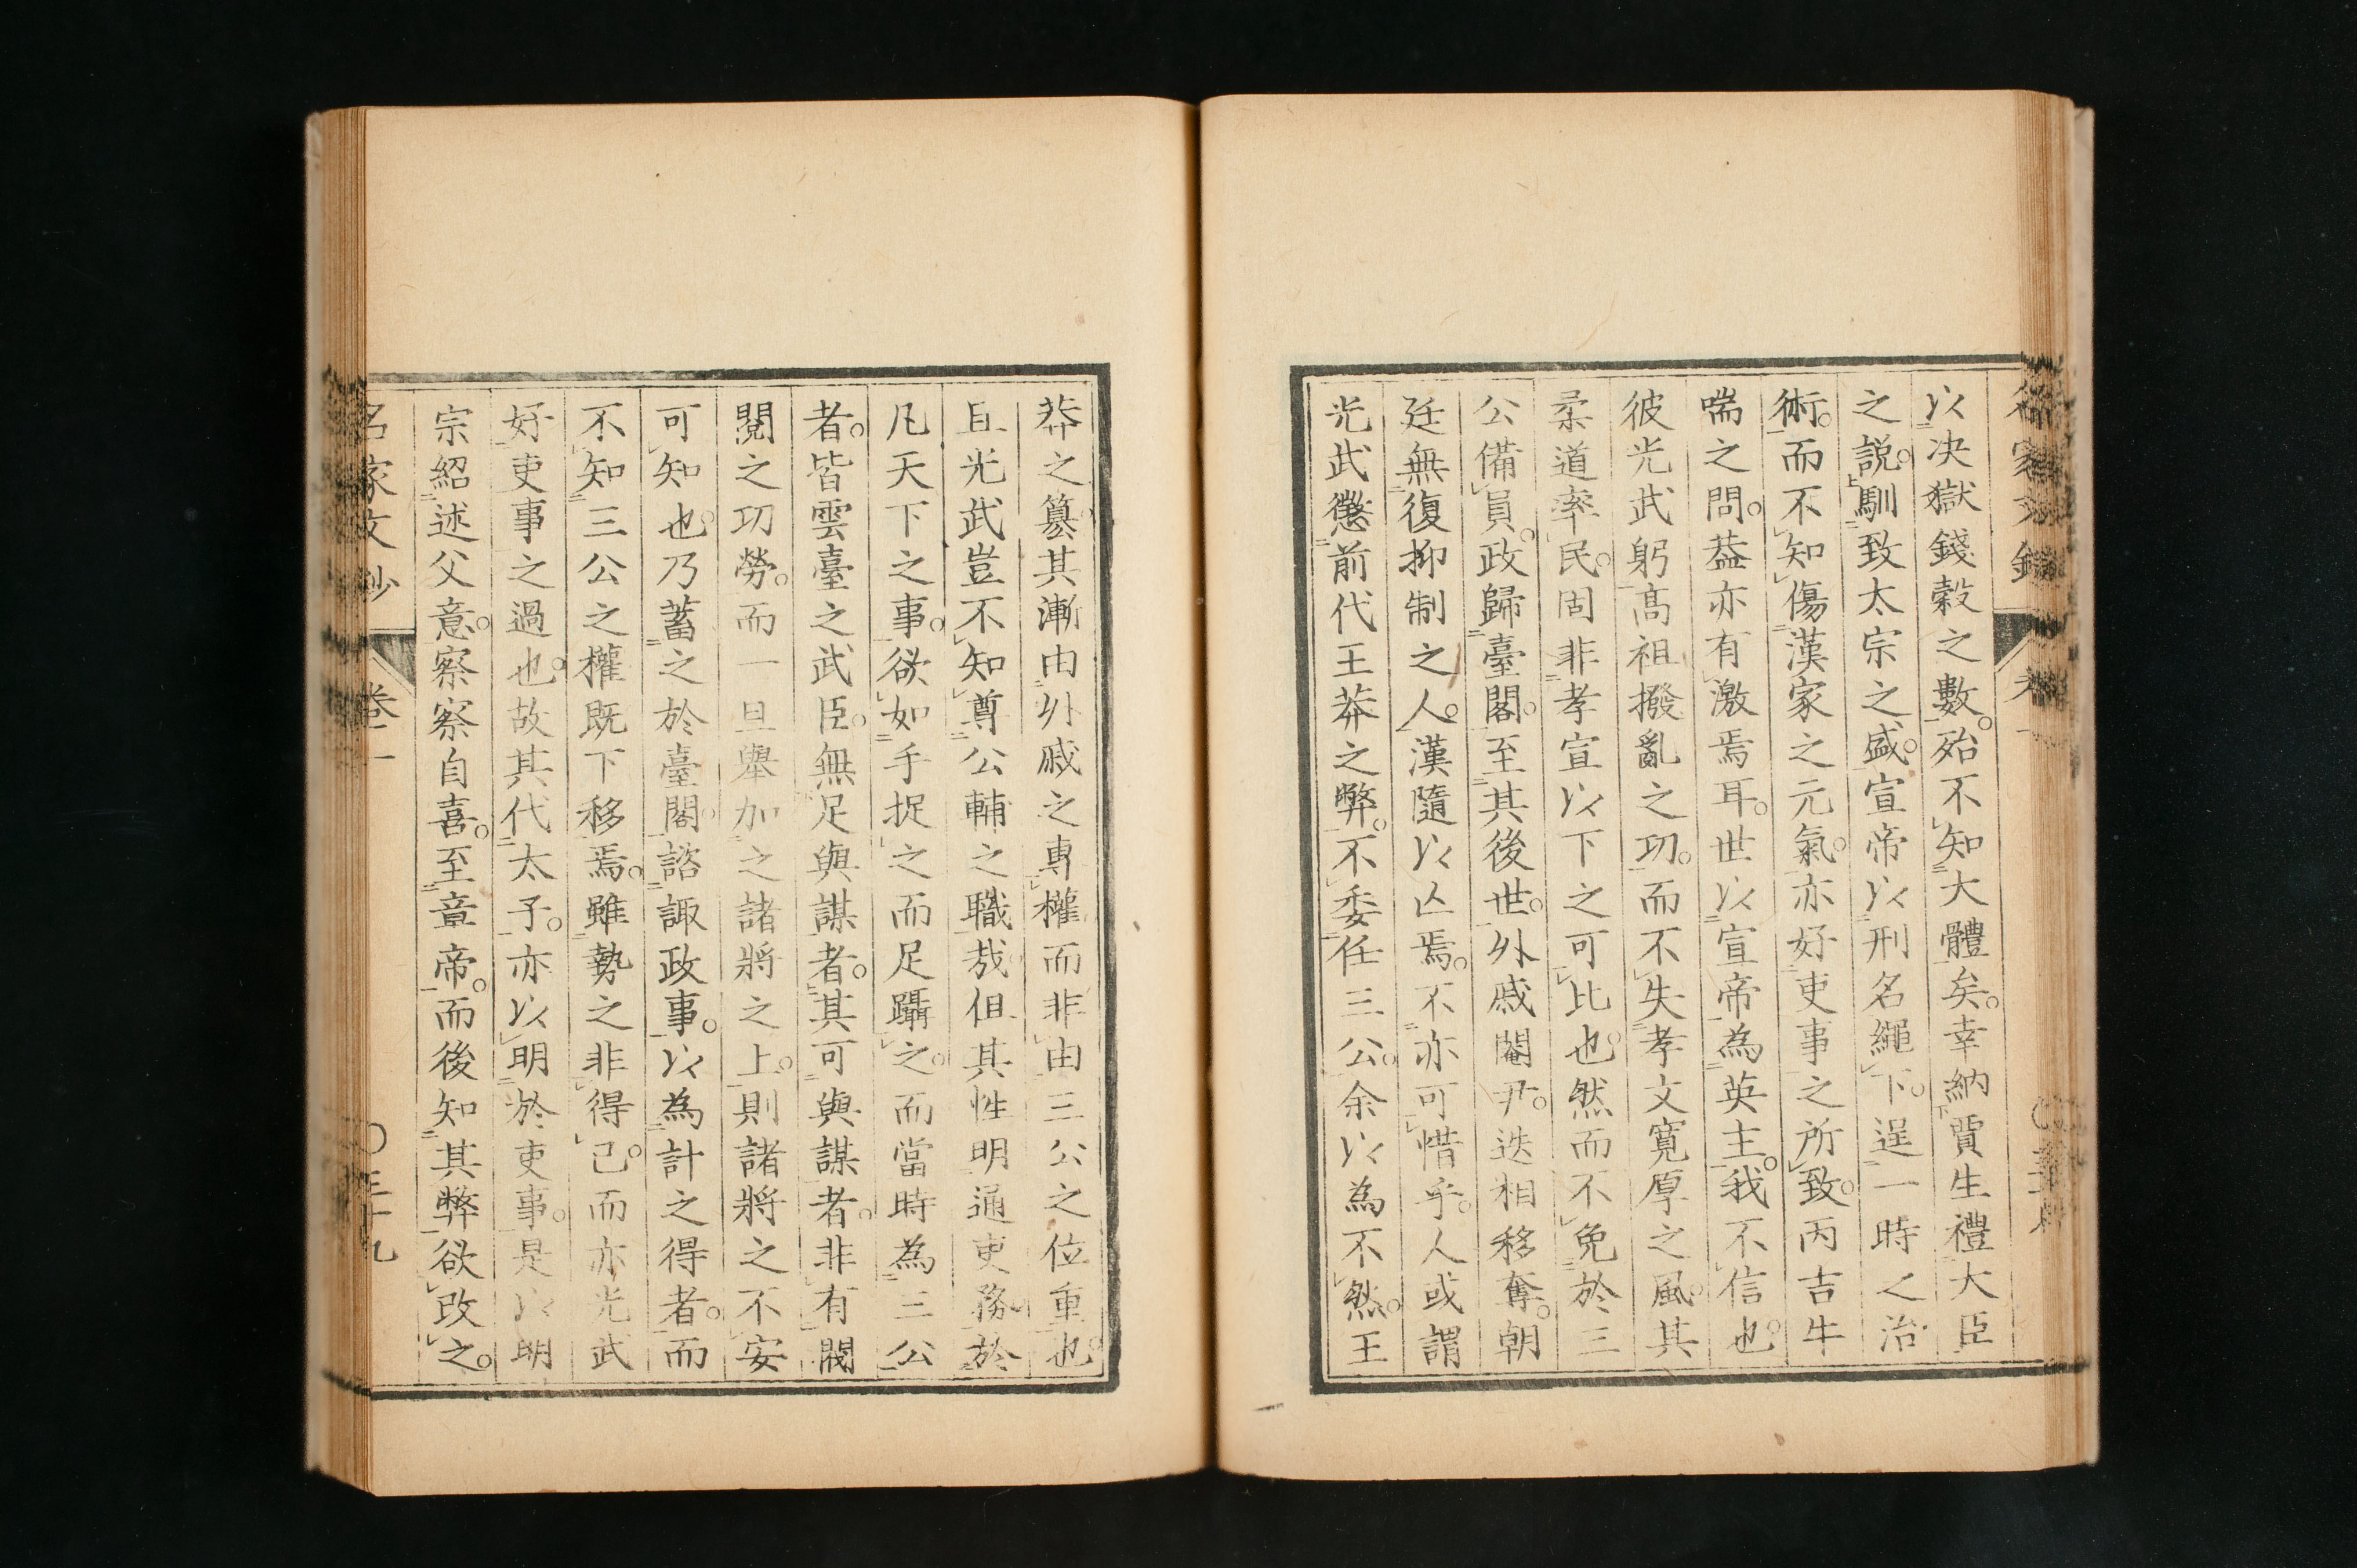 以决獄錢穀之數。殆不知大體矣。幸納賈生禮大臣
之説。馴致太宗之盛。宣帝以刑名繩下。逞一時之治
術。而不知傷漢家之元氣。亦好吏事之所致。丙吉牛
喘之問。葢亦有激焉耳。世以宣帝為英主。我不信也。
彼光武躬高祖撥亂之功。而不失孝文寬厚之風。其
柔道率民。固非孝宣以下之可比也。然而不免於三
公備員。政歸臺閣。至其後世。外戚閹尹。迭相移奪。朝
廷無復抑制之人。漢隨以亡焉。不亦可惜乎。人或謂
光武懲前代王莽之弊。不委任三公。余以為不然。王
莽之簒其漸由外戚之專權而非由三公之位重也。
且光武豈不知尊公輔之職哉。但其性明通吏務。於
凡天下之事。欲如手捉之而足躡之。而當時為三公
者。皆雲臺之武臣。無足與謀者。其可與謀者。非有閥
閱之功勞。而一旦舉加之諸將之上。則諸將之不安
可知也。乃蓄之於臺閣。諮諏政事。以為計之得者。而
不知三公之權既下移焉。雖勢之非得已。而亦光武
好吏事之過也。故其代太子。亦以明於吏事。是以明
宗紹述父意。察察自喜。至章帝。而後知其弊欲改之。
名家文抄
卷二
〇三十九